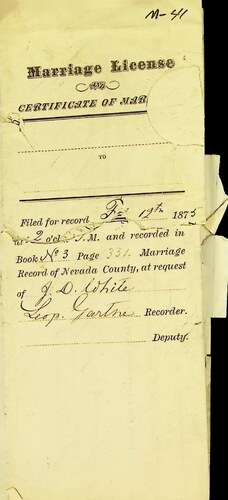 M-41
Marriage License
AND
CERTIFICATE OF MAR
TO
Filed for record 19th 1875
at 2 o'cl. P.M. and recorded in
Book No 3 Page 331. Marriage
Record of Nevada County, at request
of J. D. White
Leop. Garthe Recorder.
Deputy.